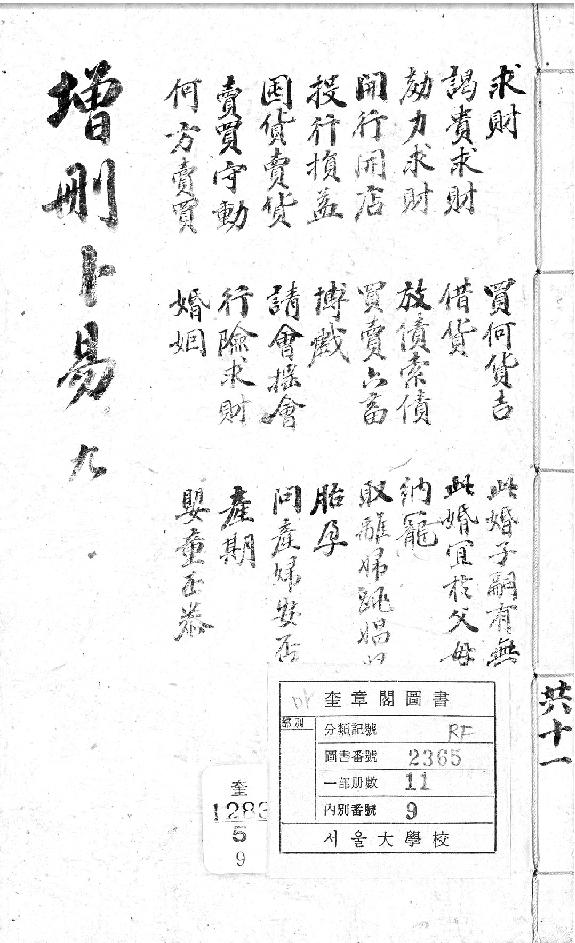 求財
謁貴求財
効力求財
開行開店
投行損益
囤貨賣貨
賣買守動
何方賣買
買何貨吉
借貸
放債索債
買賣六畜
博戲
請會搖會
行險求財
婚姻
此婚子嗣有無
此婚宜於父母
納寵
取離婦跳娼
胎孕
問產婦安否
產期
嬰童否泰
增刪卜易 九
共十一
奎章閣圖書
部別
分類記號 RF
圖書番號 2365
一部册數 11
內別番號 9
서울大學校
奎
1283
5
9